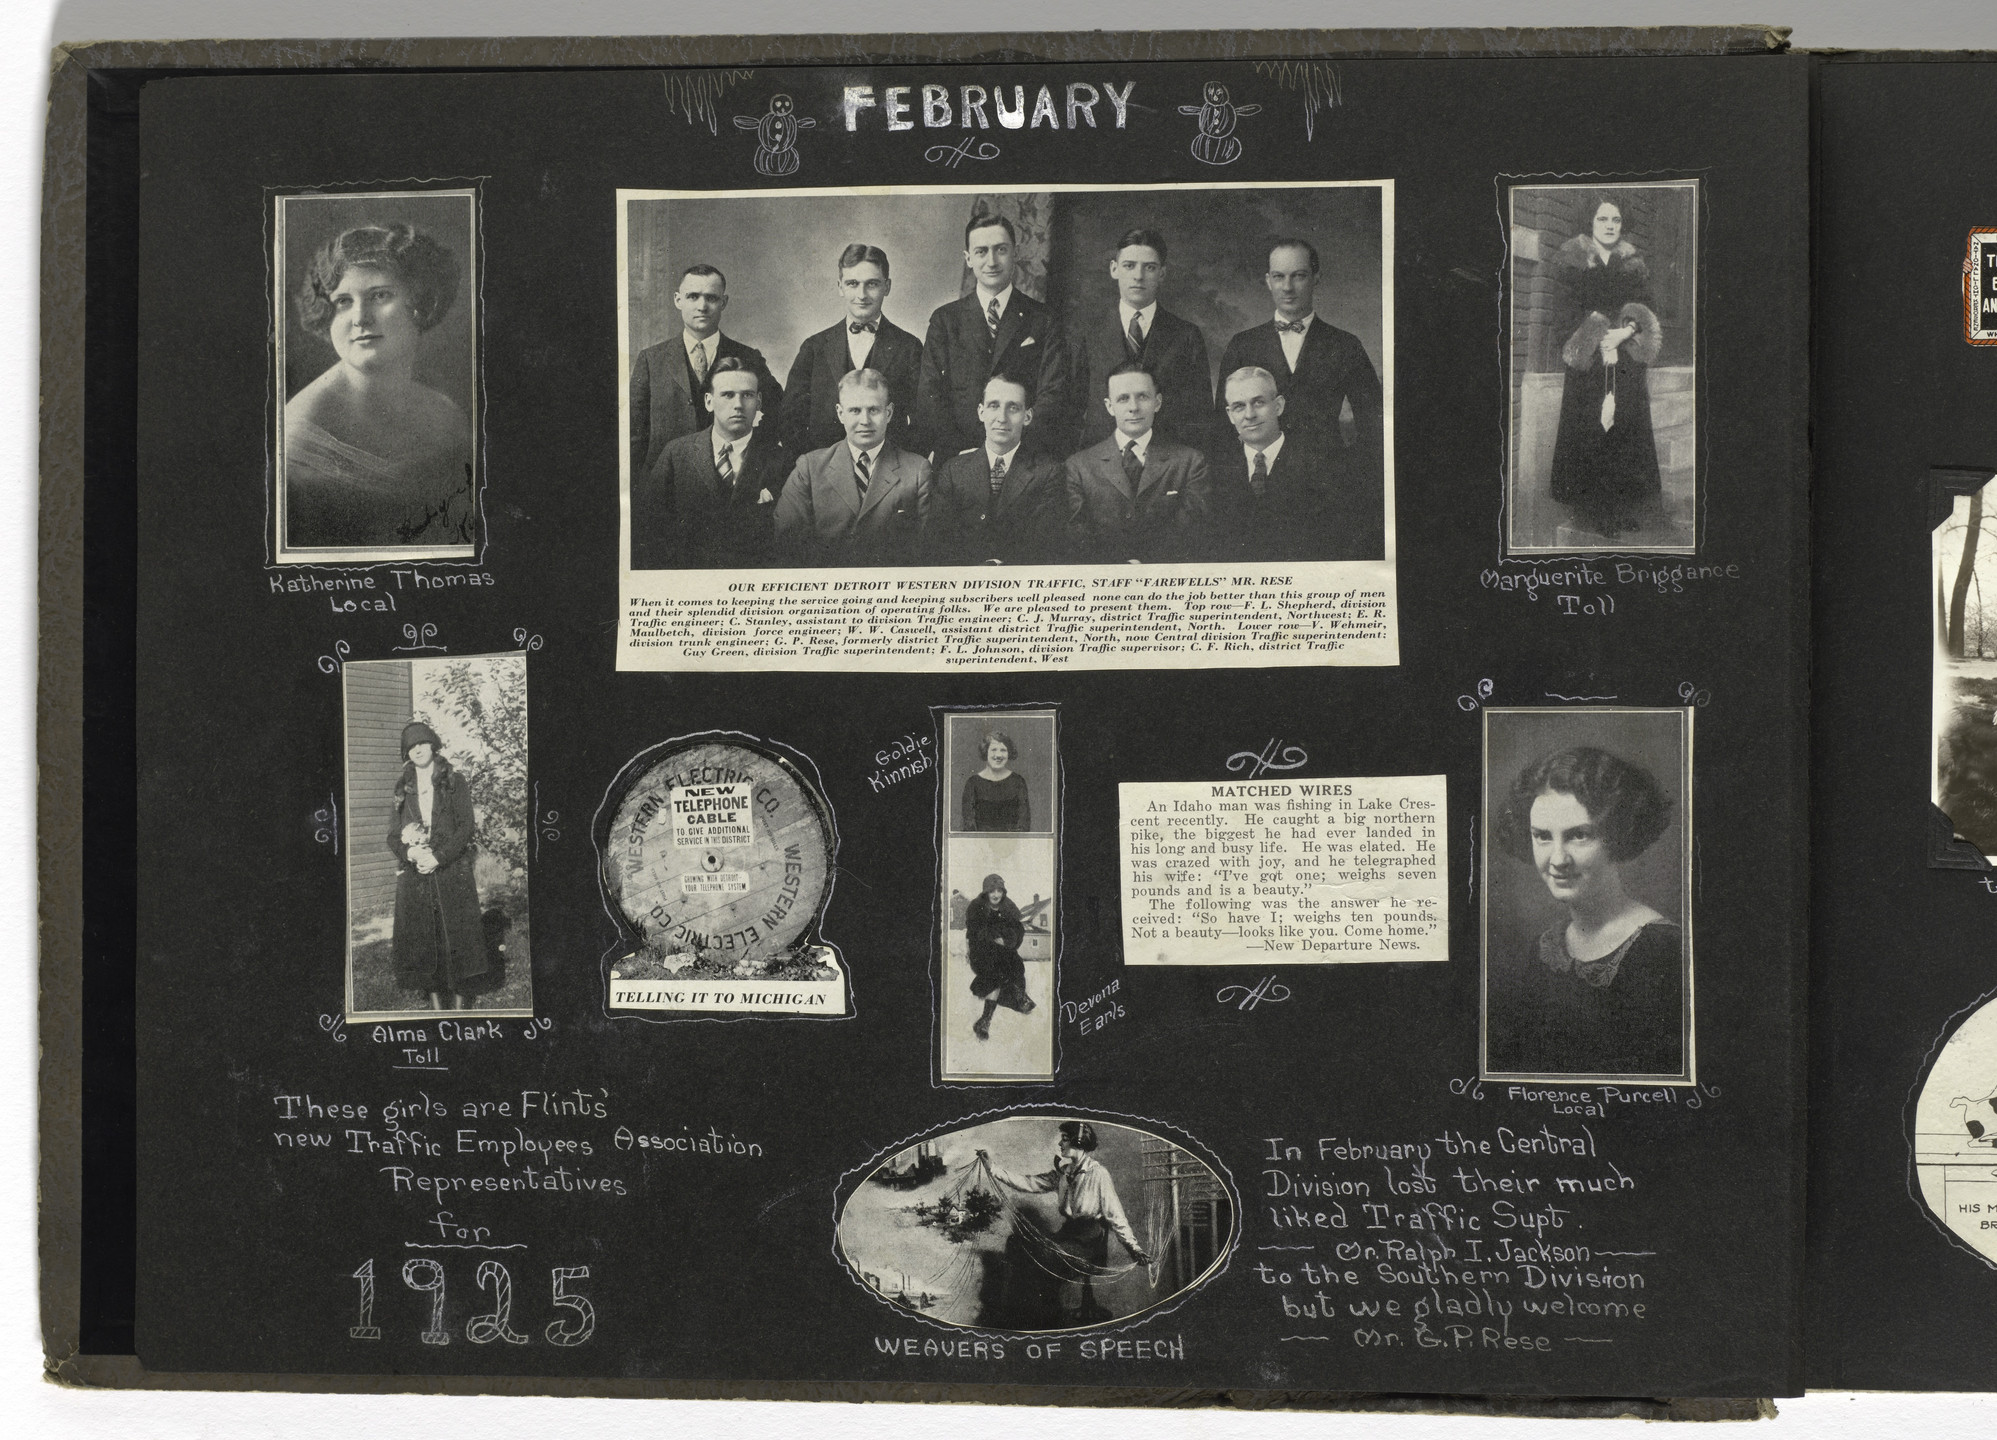 FEBRUARY
Katherine Thomas
Local
OUR EFFICIENT DETROIT WESTERN DIVISION TRAFFIC, STAFF "FAREWELLS" MR. RESE
When it comes to keeping the service going and keeping subscribers well pleased none can do the job better than this group of men
and their splendid division organization of operating folks. We are pleased to present them. Top row—F. L. Shepherd, division
Traffic engineer; C. Stanley, assistant to division Traffic engineer; C. J. Murray, district Traffic superintendent, Northwest; E. R.
Maulbetch, division force engineer; W. W. Caswell, assistant district Traffic superintendent, North. Lower row—V. Wehmeir,
division trunk engineer; G. P. Rese, formerly district Traffic superintendent, North, now Central division Traffic superintendent;
Guy Green, division Traffic superintendent; F. L. Johnson, division Traffic supervisor; C. F. Rich, district Traffic
superintendent, West
Marguerite Briggance
Toll
Alma Clark
Toll
WESTERN ELECTRIC CO.
WESTERN ELECTRIC CO.
NEW
TELEPHONE
CABLE
TO GIVE ADDITIONAL
SERVICE IN THIS DISTRICT
GROWING WITH DETROIT
YOUR TELEPHONE SYSTEM
TELLING IT TO MICHIGAN
Goldie
Kinnish
Devona
Earls
MATCHED WIRES
An Idaho man was fishing in Lake Cres-
cent recently. He caught a big northern
pike, the biggest he had ever landed in
his long and busy life. He was elated. He
was crazed with joy, and he telegraphed
his wife: "I've got one; weighs seven
pounds and is a beauty."
The following was the answer he re-
ceived: "So have I; weighs ten pounds.
Not a beauty—looks like you. Come home."
—New Departure News.
Florence Purcell
Local
These girls are Flints'
new Traffic Employees Association
Representatives
for
1925
WEAVERS OF SPEECH
In February the Central
Division lost their much
liked Traffic Supt.
— Mr. Ralph I. Jackson —
to the Southern Division
but we gladly welcome
— Mr. G. P. Rese —
HIS M
BR